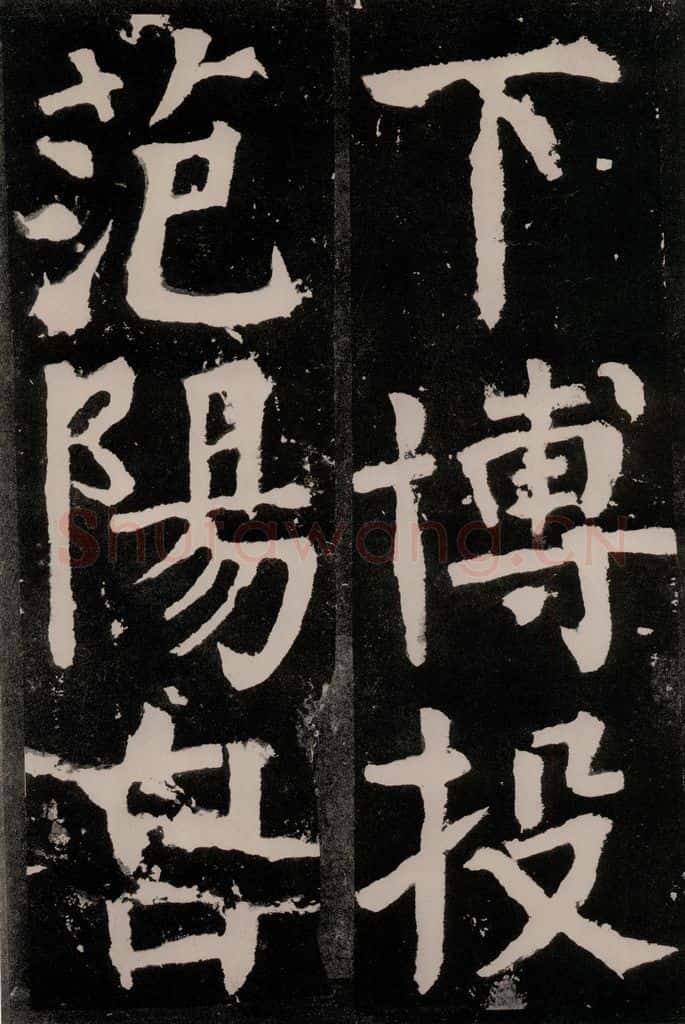 下博投
范陽
Shufawang.CN